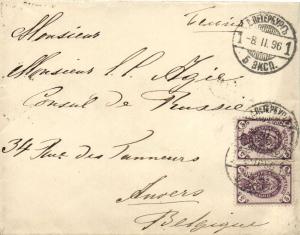 Monsieur
С.ПЕТЕРБУРГЪ
1 -8 II. 96 1
5 ЭКСП.
Monsieur
Consul de Russie
34 Rue des Tanneurs
Anvers
Belgique